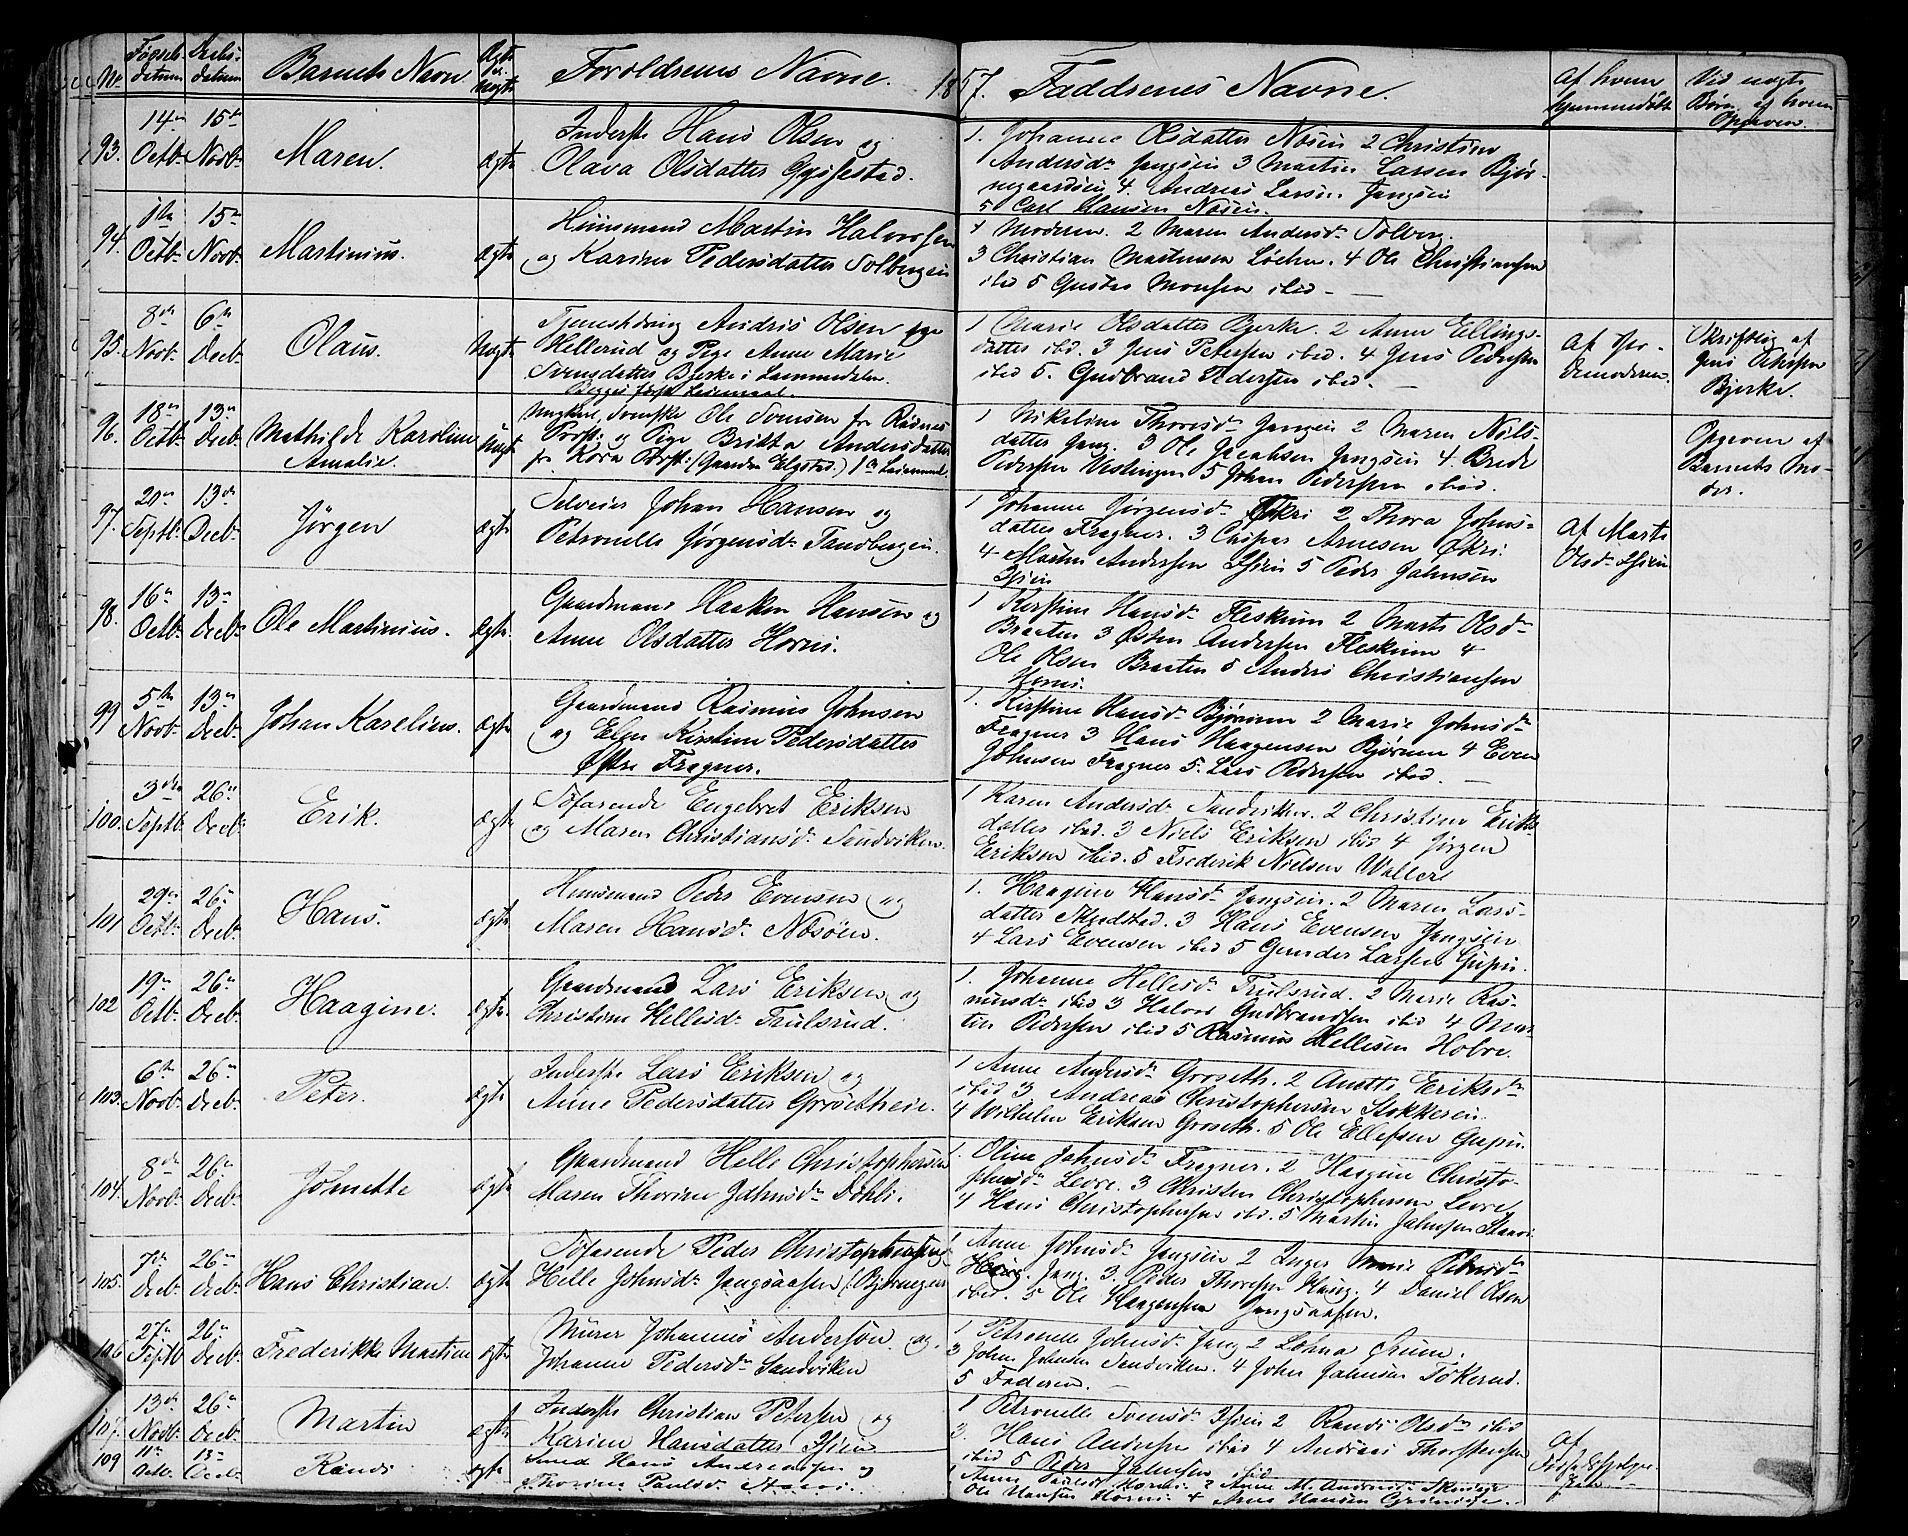 No Fødsels datum Daabs datum Barnets Navn Ægte ell. uægte Forældrenes Navne. 1857. Faddernes Navne. Af hvem hjemmedøbt Ved uægte Børn af hvem Opgaven.
93. 14de Octb. 15de Novb. Maren. ægte
Inderste Hans Olsen og
Olava Olsdatter Gjesestad.
1. Johanne Olsdatter Nøsen 2 Christine
Andersdr Jongsein 3 Martin Larsen Bjør-
negaardsein 4. Andreas Larsen Jongsein
5 Carl Hansen Nøsein.
94. 1te Octb. 15de Novb. Martinius. ægte
Huusmand Martin Halvorsen
og Karine Pedersdatter Solbergein
1 Moderen. 2 Maren Andersdr
3 Christian Martinsen Løchn. 4 Ole Christiansen
ibid 5 Gustav Monsen ibid
95. 8de Novb. 6te Decb. Olaus. Uægte
Tjenestdreng Andris Olsen
Hellerud og Pige Anne Marie
Svensdatter Bjerke i Lommedalen.
Begges første Leiermaal.
1 Marie Olsdatter Bjerke. 2 Anne Ellings-
datter ibd. 3 Jens Petersen ibid. 4 Jens Pedersen
ibid 5. Gudbrand Pedersen ibid.
Af Jor-
demoderen.
Skriftlig af
Jens
Bjerke.
96. 18de Octb. 13de Decb. Mathilde Karoline
Amalie. Uægte
Ungkarl Svenske Ole Svensen fr Rådnes
Præst: og Pige Britta Andersdatter
fr Kora Præst: (Gaarden Elgstad) 1te Leiermaal.
1 Nikoline Thorisdr Jongsein 2 Maren Niels-
datter Jong. 3 Ole Jacobsen Jongsein 4. Brede
Pedersen Vestengen 5 Johan Pedersen ibid.
Opgaven af
Barnets Mo-
der.
97. 20de Septb. 13de Decb. Jørgen ægte
Selveier Johan Hansen og
Petronelle Jørgensdr Tandbergein.
1 Johanne Jørgensdr Økri 2 Thora Johns-
datter Fragner. 3 Casper Arnesen Økri.
4 Andersen Isiein 5 Peder Johnsen
Isiein
Af Marte
Olsdr Isiein
98. 16de Octb. 13de Decb. Ole Martinius. ægte.
Gaardmand Haaken Hansen og
Anne Olsdatter Horni.
1 Kirstine Hansdr Fleskum 2 Marte Olsdr
Braaten 3 Østen Andersen Fleskum 4
Ole Olsen Braaten 5 Anders Christiansen
Horni.
99 5te Novb. 13de Decb. Johan Karelius. ægte
Gaardmand Rasmus Johnsen
og Elen Kirstine Pedersdatter
Østre Fragner.
1. Kirstine Hansdr Bjørum 2 Marie Johnsdr
Fragner 3 Hans Haagensen Bjørum 4 Even
Johnsen Fragner 5. Lars Pedersen ibid.
100. 3die Septb. 26de Decb. Erik. ægte
Søfarende Engebret Eriksen
og Maren Christiansdr Sandviken.
1 Karen Andersdr Sandviken. 2 Christine Eriks-
datter ibid. 3 Niels Eriksen ibid 4 Jørgen
Eriksen ibid. 5 Frederik Nielsen Waller
101 29de Octb. 26de Decb. Hans. ægte
Huusmand Peder Evensen og
Maren Hansdr Nøsøen.
1. Haagine Hansdr Jongsein. 2 Maren Lars-
datter Skudstad. 3 Hans Evensen Jongsein
4 Lars Evensen ibid 5 Gunder Larsen Gupu.
102 19de Octb. 26de Decb. Haagine. ægte.
Gaardmand Lars Eriksen og
Christine Hellesdr Trulsrud.
1. Johanne Hellesdr Trulsrud. 2 Marie Ras-
musdr ibid 3 Halvor Gudbrandsen ibid 4 Mar-
tin Pedersen ibid 5 Rasmus Hellesen Hobre.
103. 6te Novb. 26de Decb. Peter. ægte
Inderste Lars Eriksen og
Anne Pedersdatter Grøsetheie.
1 Anne Andersdr Groseth. 2 Anette Eriksdr
ibid 3 Andreas Christophersen Stokkerein
4 Wilhelm Eriksen Groseth. 5 Ole Ellefsen Gupu.
104. 8de Novb. 26de Decb. Johnette ægte
Gaardmand Helle Christophersen
Maren Thorine Johnsdr Dæhli.
1. Oline Johnsdr Fragner. 2 Haagine Christo-
phersdr Levre. 3 Christen Christophersen Levre
4 Hans Christophersen ibid. 5 Martin Johnsen Staver
105. 7de Decb. 26de Decb. Hans Christian. ægte
Søfarende Peder Christophersen
Helle Johnsdr Jongsaasen (Bjørnegaard
1 Anne Johnsdr Jongsein 2 Inger Marie
Haug. Jong. 3. Peder Thoresen Haug. 4 Daniel Olsen
ibid. 5 Ole Haagensen Jongsaasen.
106 27de Septb. 26de Decb. Frederikke Martine ægte
Murer Johannes Andersen og.
Johanne Pedersdr Sandviken
1 Petronelle Johnsdr Jong 2 Lohna Grüne.
3 John Johnsen Sandviken. 4 John Johnsen Tokerud.
5 Faderen.
107. 13de Novb. 26de Decb. Martin ægte
Inderste Christian Petersen og
Karine Hansdatter Isiein
1 Petronelle Svensdr Isiein 2 Randi Olsdr ibid
3. Hans Andersen ibid 4 Andreas Thorstensen
ibid 5 Peder Johnsen ibid
Af
109 11te Octb. 13de Decb. Randi ægte
Smed Hans Andreassen og
Thorine Paulsdr
1 Anne Horni. 2 Anne M. Andersdr
Ole Hansen Horni 4 Arne Hansen